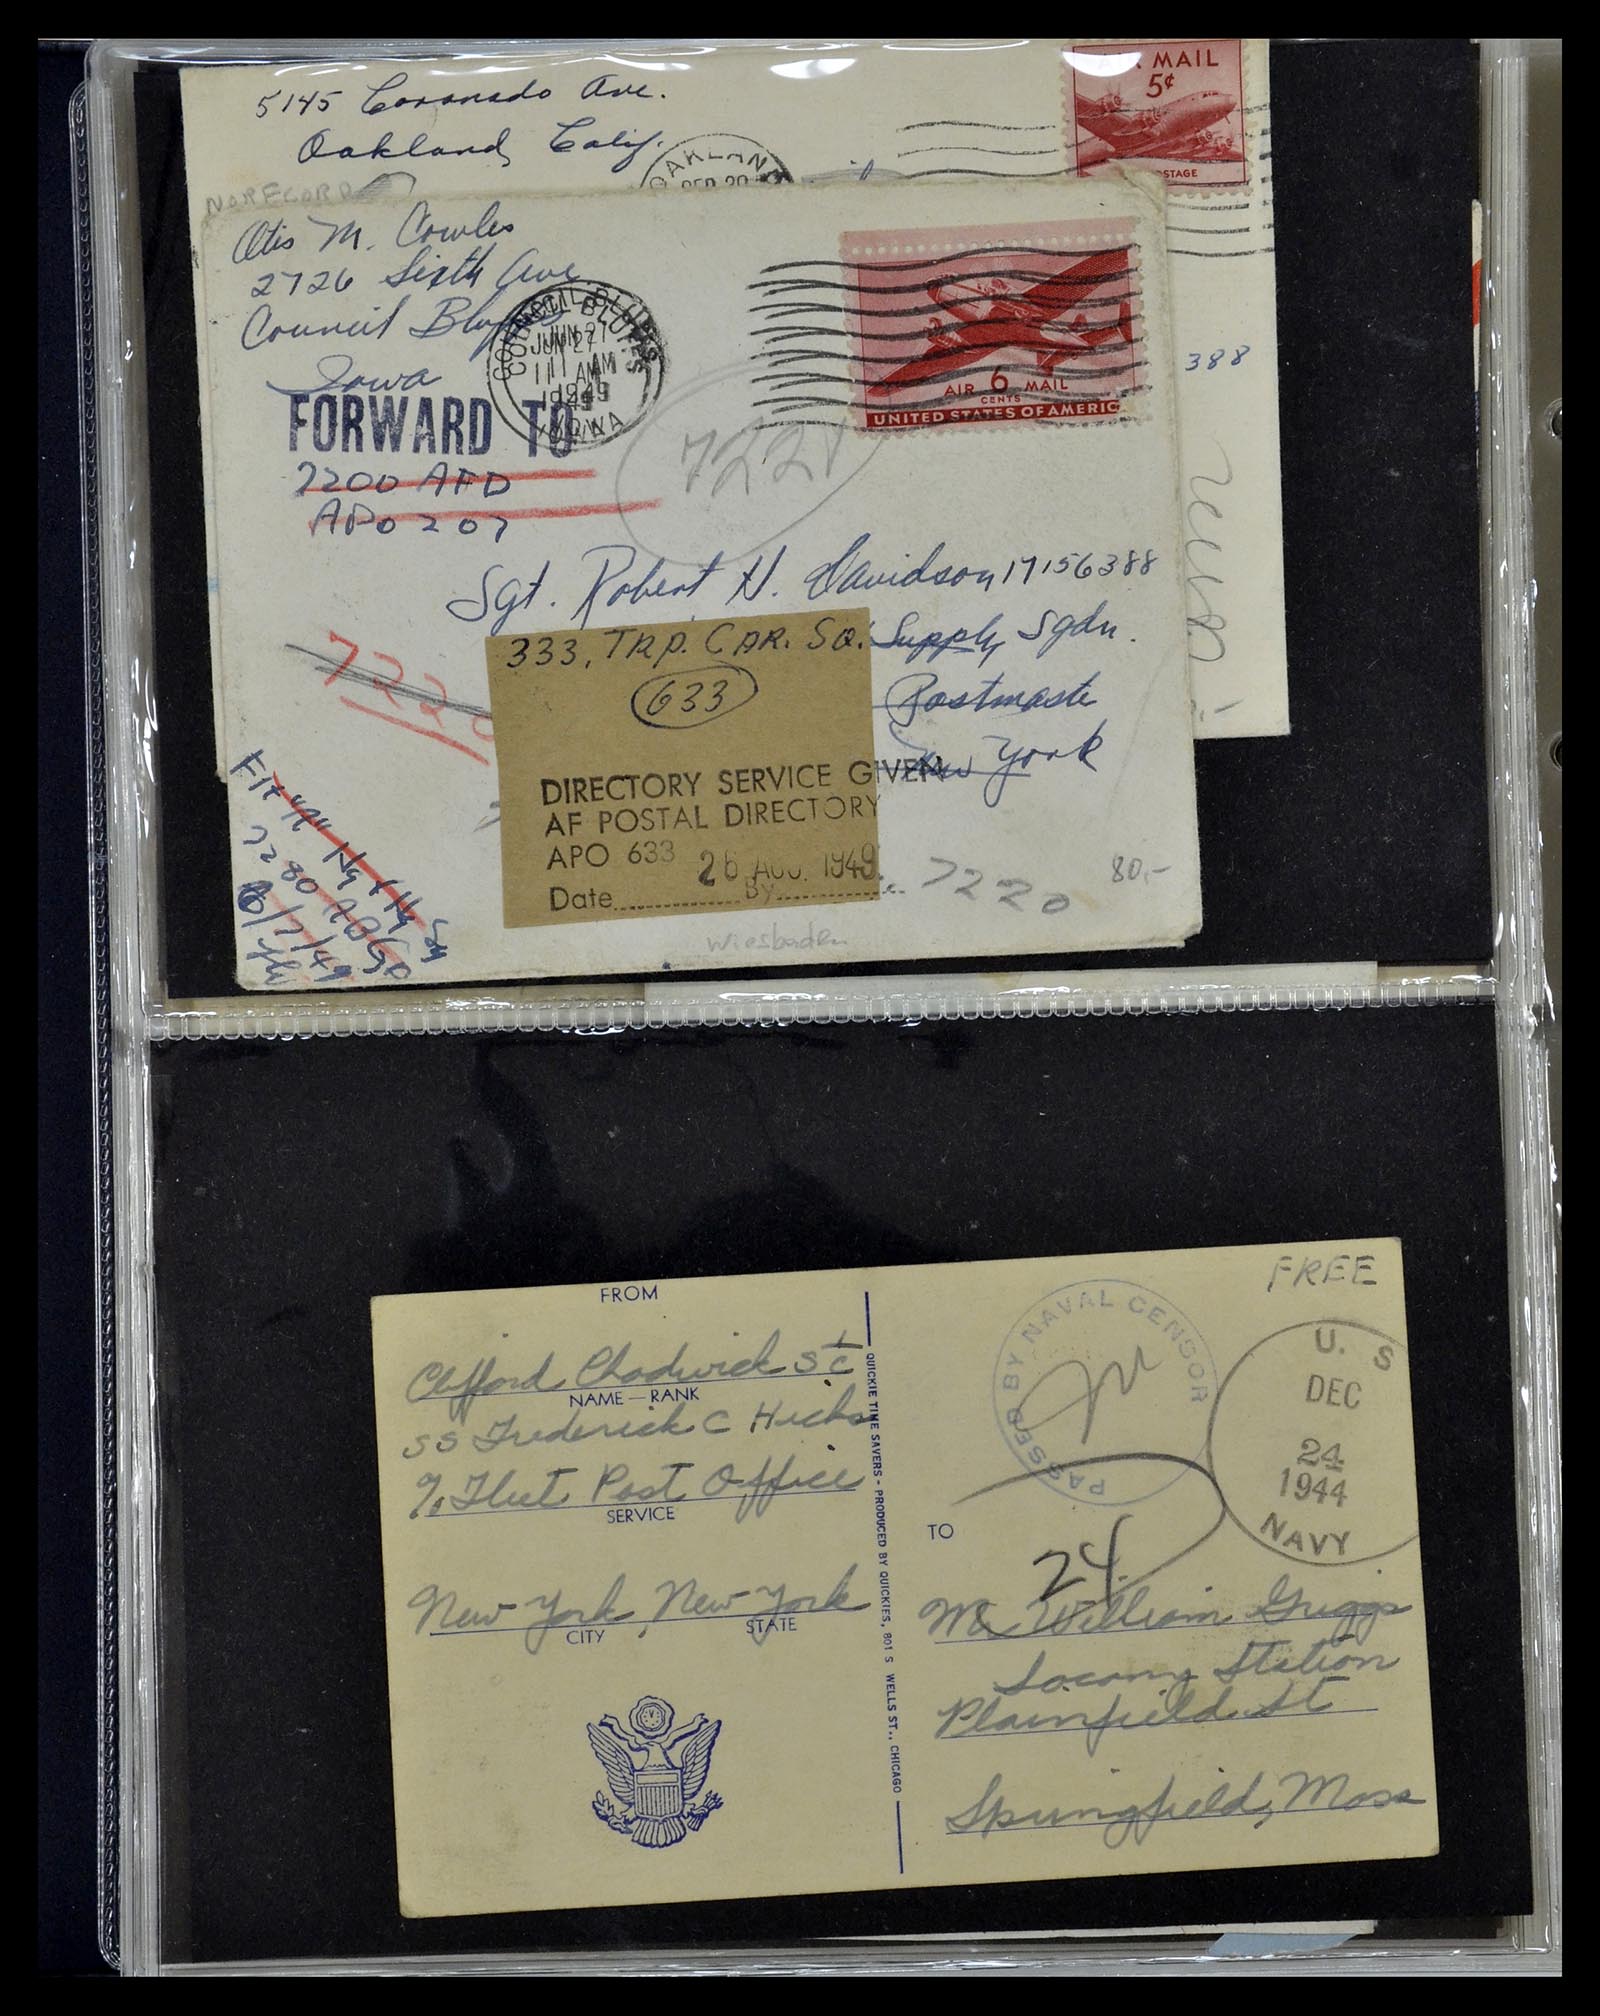 5145 Coronado Ave.
Oakland, Calif.
OAKLAND
AIR MAIL
5¢
STAGE
NORFCORD
Otis M. Cowles
2726 Sixth Ave
Council Bluffs
Iowa
COUNCIL BLUFFS
JUN 27
11 AM
1949
IOWA
AIR 6 MAIL
CENTS
UNITED STATES OF AMERIC
388
FORWARD TO
7200 AFD
APO 207
7221
Sgt. Robert H. Davidson 17156388
Supply Sqdn.
Postmaste
New York
333, TRP. CAR. SQ.
633
DIRECTORY SERVICE GIVEN
AF POSTAL DIRECTORY
APO 633 26 AUG. 1949
Date By
7220
7220
80,-
Wiesbaden
Hq & Hq Sq
7280 ABGp
FREE
FROM
Clifford Chadwick S 1/c
NAME — RANK
SS Frederick C Hicks
% Fleet Post Office
SERVICE
New York, New York
CITY STATE
QUICKIE TIME SAVERS - PRODUCED BY QUICKIES, 801 S WELLS ST., CHICAGO
PASSED BY NAVAL CENSOR
U. S
DEC
24
1944
NAVY
TO
24
Mr William Griggs
Socony Station
Plainfield St
Springfield, Mass